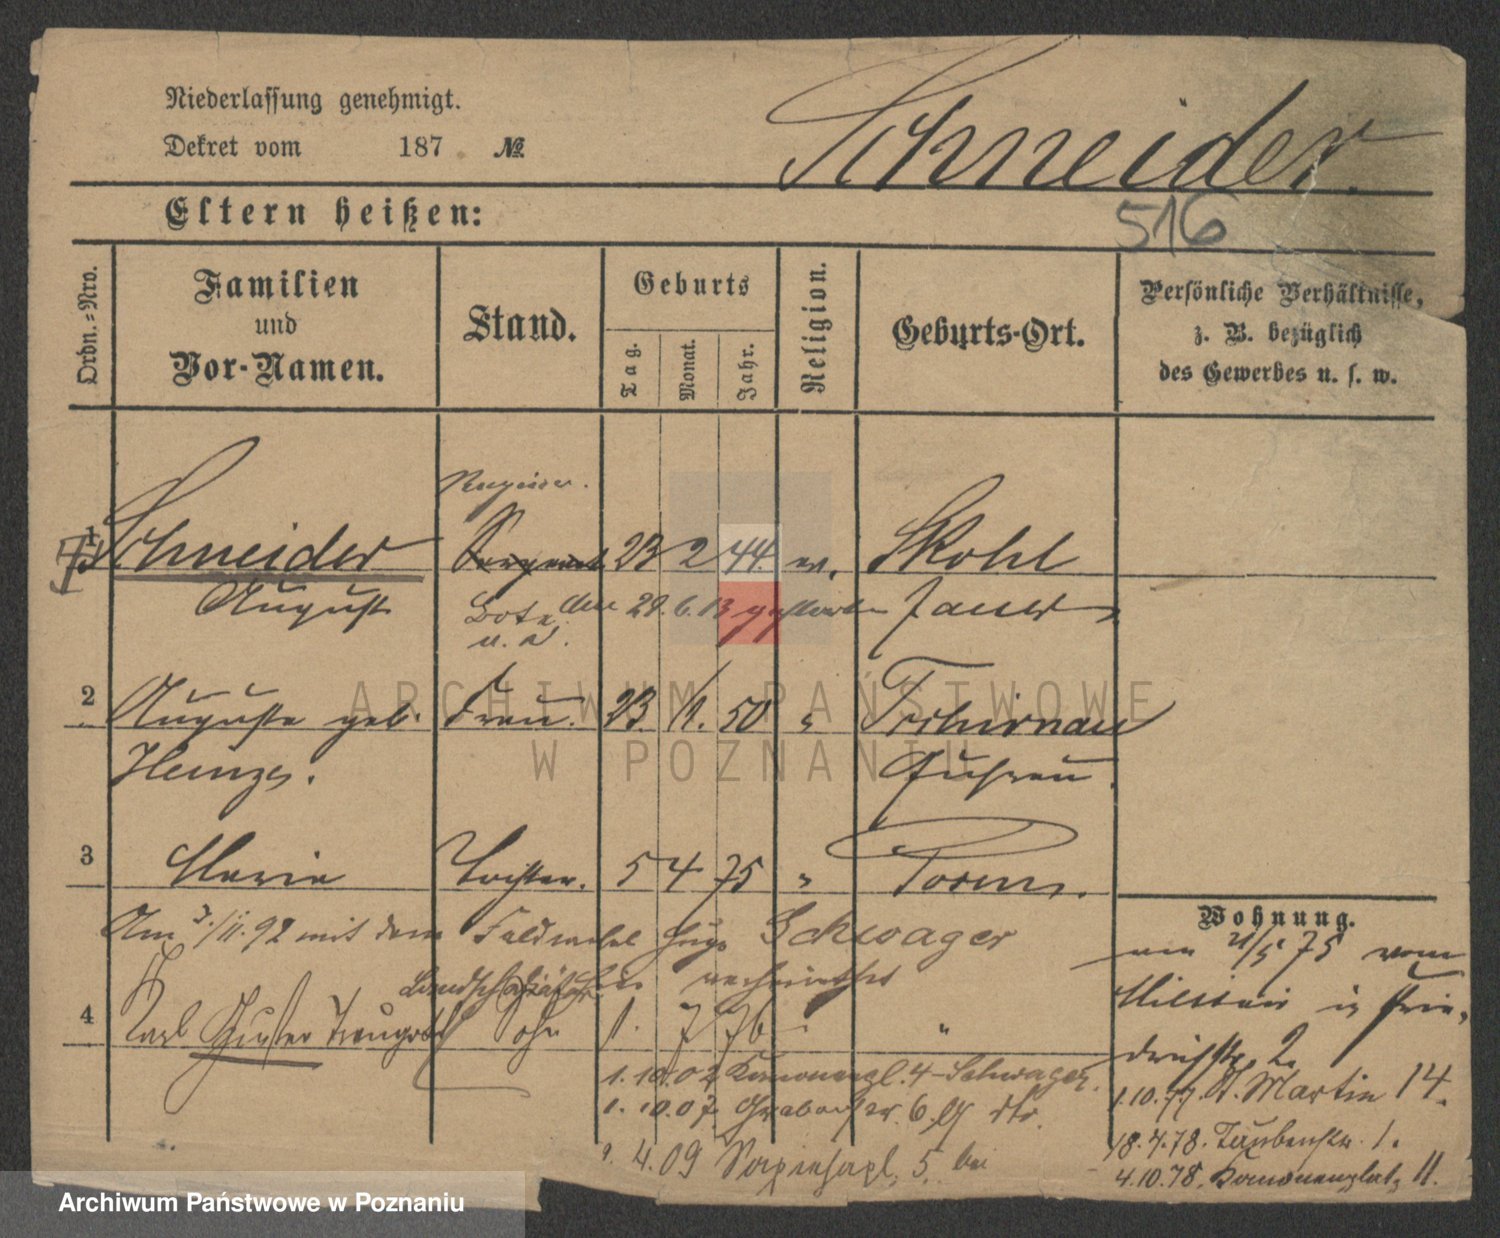 Niederlassung genehmigt.
Dekret vom 187 №
Schneider.
Eltern heißen:
516
Ordn.-Nro.
Familien
und
Vor-Namen.
Stand.
Geburts
Tag.
Monat.
Jahr.
Religion.
Geburts-Ort.
Persönliche Verhältnisse,
z. B. bezüglich
des Gewerbes u. s. w.
1 Schneider Sergeant 23 2 44. ev. Skohl
August Bote den 29.6.13 gestorben Jauer
u. a.
2 Auguste geb. Frau. 23. 1. 50 " Tschirnau
Heinze. Guhrau.
3 Marie Tochter. 5 4 75 " Posen.
Wohnung.
Am 3./11.92 mit dem Feldwebel Hugo Schwager
verheirathet
am 21/5 75 vom
Militair in Frie-
drichstr. 2.
4 Karl Gustav Traugott Sohn 1. 7 76 "
1.10.02 4 Schwager.
1.10.77. St. Martin 14.
1.10.07. 6
18.4.78. Taubenstr. 1.
4.09 Sapiehapl. 5. bei
4.10.78. Kanonenplatz 11.
ARCHIWUM PAŃSTWOWE
W POZNANIU
Archiwum Państwowe w Poznaniu